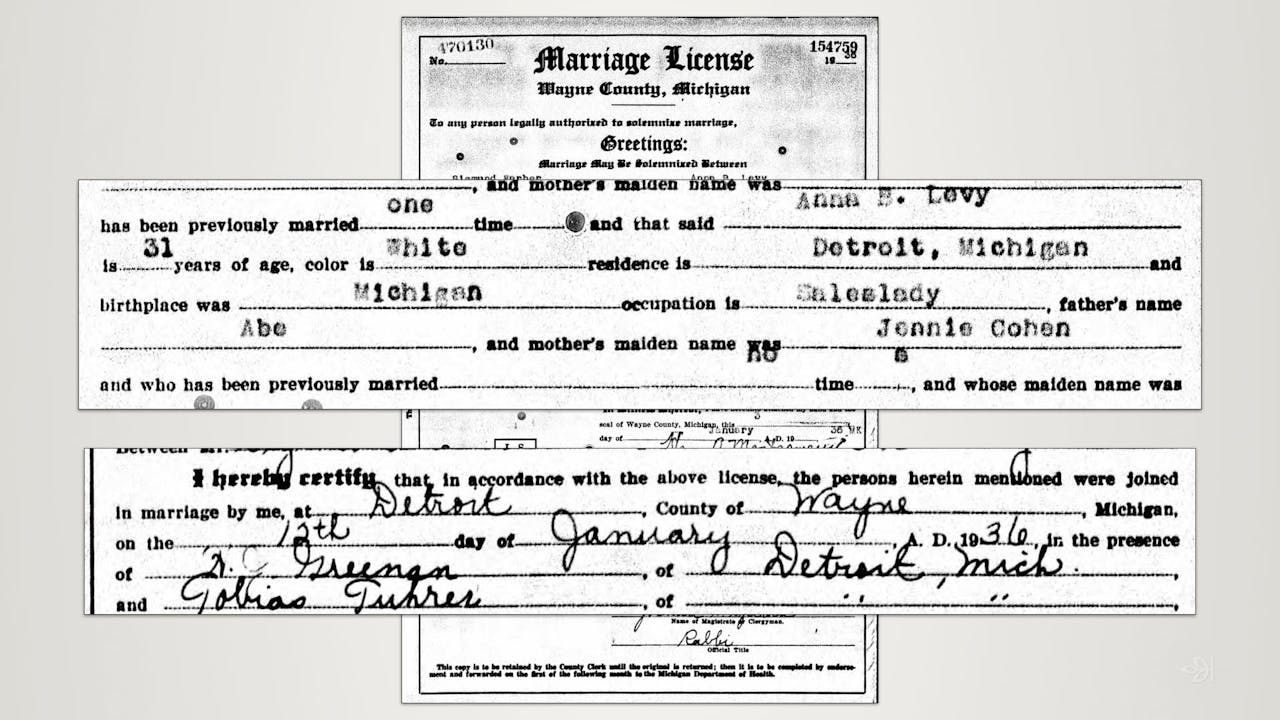 470130 154759
No. 19 36
Marriage License
Wayne County, Michigan
To any person legally authorized to solemnize marriage,
Greetings:
Marriage May Be Solemnized Between
Anna B. Levy
, and mother's maiden name was
one Anna B. Levy
has been previously married time and that said
31 White Detroit, Michigan
is years of age, color is residence is and
Michigan Saleslady
birthplace was occupation is , father's name
Abe Jennie Cohen
, and mother's maiden name was
no s
and who has been previously married time , and whose maiden name was
seal of Wayne County, Michigan, this 3
day of January A.D. 19 36 MK
L S
Between Mr.
I hereby certify that, in accordance with the above license, the persons herein mentioned were joined
in marriage by me, at Detroit , County of Wayne , Michigan,
on the 12th day of January , A. D. 1936, in the presence
of Greenan , of Detroit, Mich. ,
and Tobias , of " " ,
Name of Magistrate or Clergyman.
Rabbi
Official Title
This copy is to be retained by the County Clerk until the original is returned; then it is to be completed by endorse-
ment and forwarded on the first of the following month to the Michigan Department of Health.